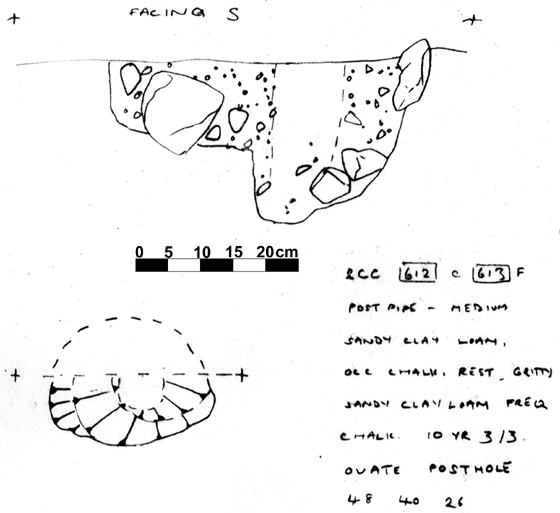 FACING S
0 5 10 15 20cm
612 C 613 F
POST PIPE - MEDIUM
SANDY CLAY LOAM,
OCC CHALK. REST - GRITTY
SANDY CLAY LOAM FREQ
CHALK. 10 YR 3/3.
OVATE POSTHOLE
48 40 26